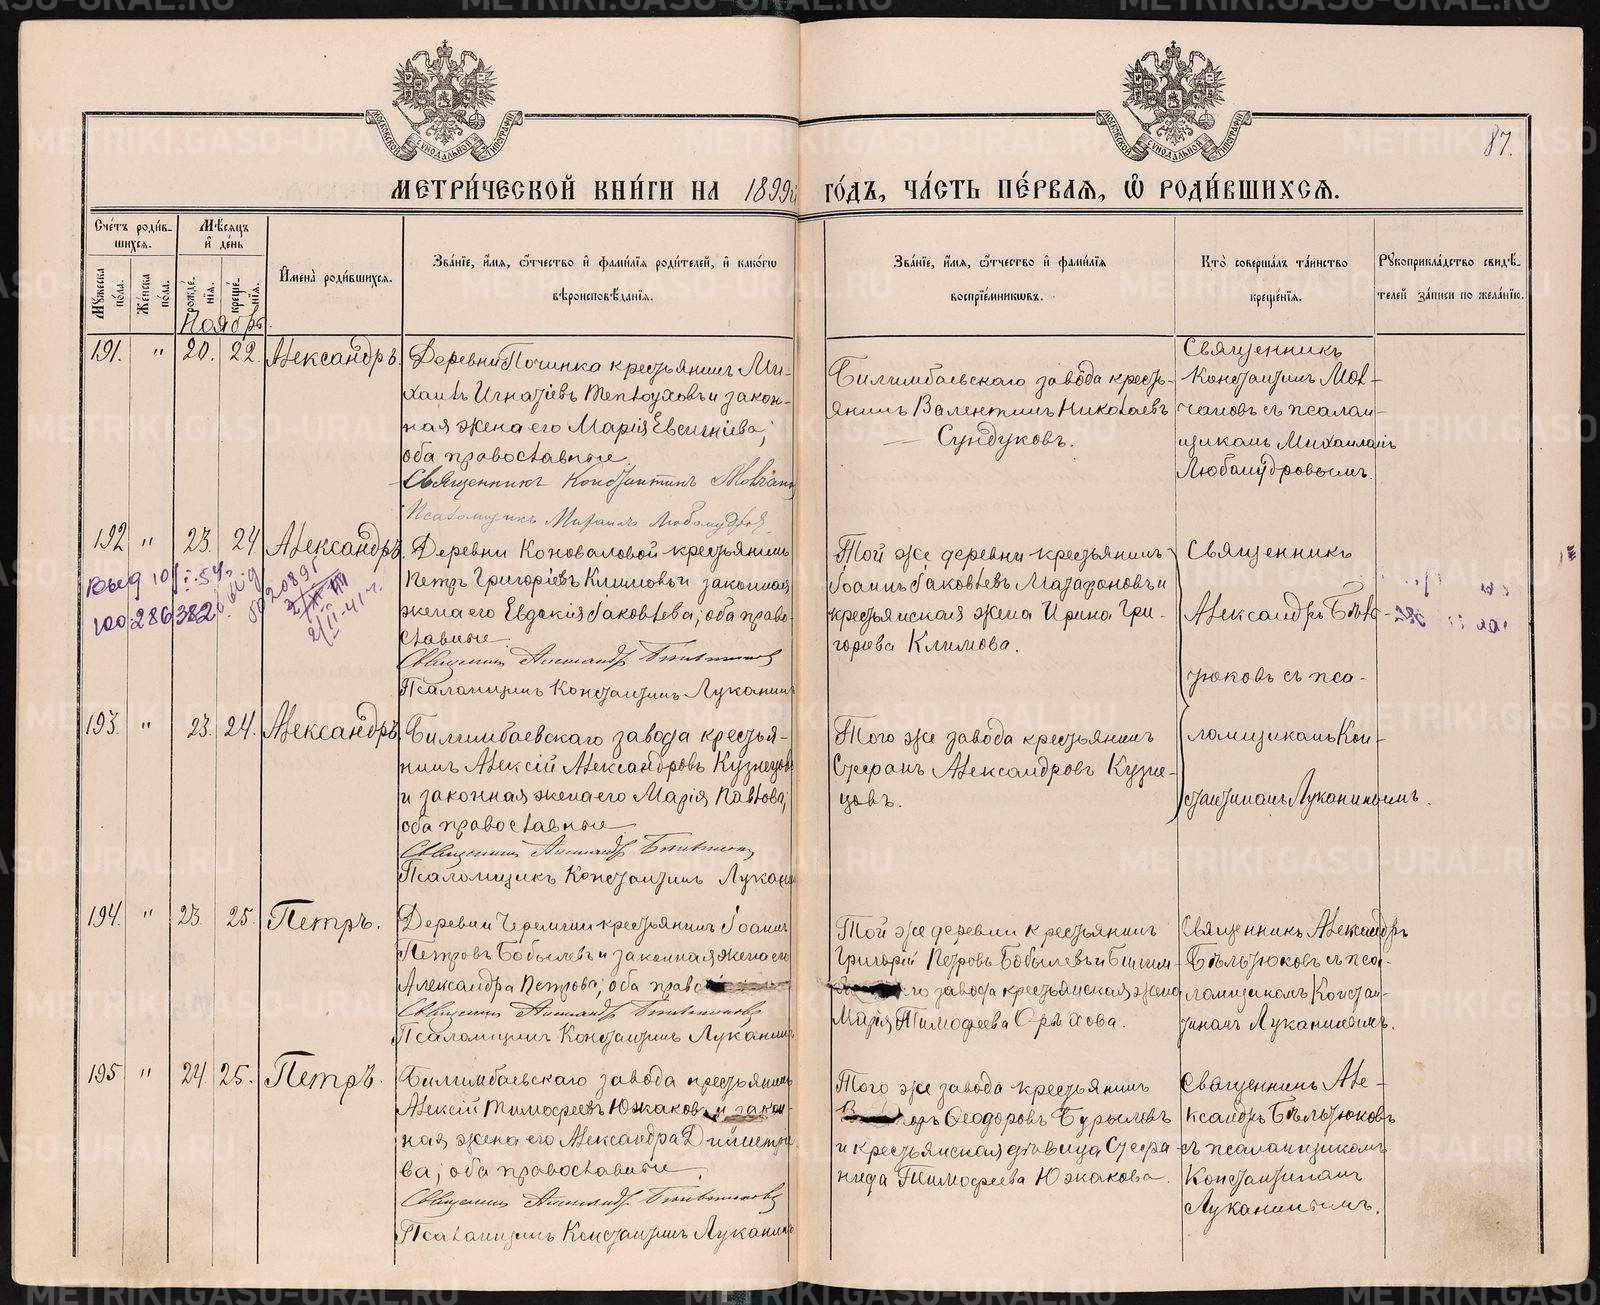 87.
МЕТРИ́ЧЕСКОЙ КНИ́ГИ НА 1899й ГО́ДЪ, ЧА́СТЬ ПЕ́РВАЯ, Ѽ РОДИ́ВШИХСЯ.
Сче́тъ роди́в-
шихся.
Мѣ́сяцъ
и҆ де́нь
И҆мена̀ роди́вшихся.
Зва́нїе, и҆́мя, ѻ҆́тчество и҆ фами́лїя роди́телей, и҆ како́гѡ
вѣроисповѣ́данїя.
Зва́нїе, и҆́мя, ѻ҆́тчество и҆ фами́лїя
воспрїе́мниковъ.
Кто̀ соверша́лъ та́инство
креще́нїя.
Рꙋкоприкла́дство свидѣ́-
телей за́писи по жела́нїю.
Мꙋ́жеска
по́ла.
Же́нска
по́ла.
рожде́-
нїя.
креще́-
нїя.
Ноябрь.
191. " 20. 22. Александръ.
Деревни Починка крестьянинъ Ми-
хаилъ Игнатіевъ Теплоуховъ и закон-
ная жена его Марія Евсигніева;
оба православные
Священникъ Константинъ
Псаломщикъ Михаилъ Любомудров
Билимбаевскаго завода кресть-
янинъ Валентинъ Николаевъ
Сундуковъ.
Священникъ
Константинъ Мол-
чановъ съ псалом-
щикомъ Михаиломъ
Любомудровымъ.
192 " 23. 24. Александръ.
Деревни Коноваловой крестьянинъ
Петръ Григоріевъ Климовъ и законная
жена его Евдокія Іаковлева; оба право-
славные
Священникъ Александр Бѣльтюков
Псаломщикъ Константинъ Луканинъ
Той же деревни крестьянинъ
Іоаннъ Іаковлевъ Мазафоновъ и
крестьянская жена Ирина Гри-
горіева Климова.
Священникъ
Александръ Бѣль-
тюковъ съ пса-
ломщикомъ Кон-
стантиномъ Луканинымъ.
193. " 23. 24. Александръ.
Билимбаевскаго завода крестья-
нинъ Алексій Александровъ Кузнецовъ
и законная жена его Марія Павлова;
оба православные
Священникъ Александр Бѣльтюков
Псаломщикъ Константинъ Луканинъ
Того же завода крестьянинъ
Стефанъ Александровъ Кузне-
цовъ.
194. " 23. 25. Петръ.
Деревни Черемши крестьянинъ Іоаннъ
Петровъ Бобылевъ и законная жена его
Александра Петрова; оба правос
Священникъ Александр Бѣльтюков
Псаломщикъ Константинъ Луканинъ
Той же деревни крестьянинъ
Григорій Петровъ Бобылевъ и Билим-
го завода крестьянская жена
Марія Тимофеева Орѣхова.
Священникъ Александръ
Бѣльтюковъ съ пса-
ломщикомъ Констан-
тиномъ Луканинымъ.
195 " 24. 25. Петръ.
Билимбаевскаго завода крестьянинъ
Алексій Тимофеевъ Южаковъ и закон-
ная жена его Александра Димитріе-
ва; оба православные
Священникъ Александр Бѣльтюков
Псаломщикъ Константинъ Луканинъ
Того же завода крестьянинъ
Ѳеодоровъ Бурыловъ
и крестьянская дѣвица Стефа-
нида Тимофеева Южакова.
Священникъ Але-
ксандръ Бѣльтюковъ
съ псаломщикомъ
Константиномъ
Луканинымъ.